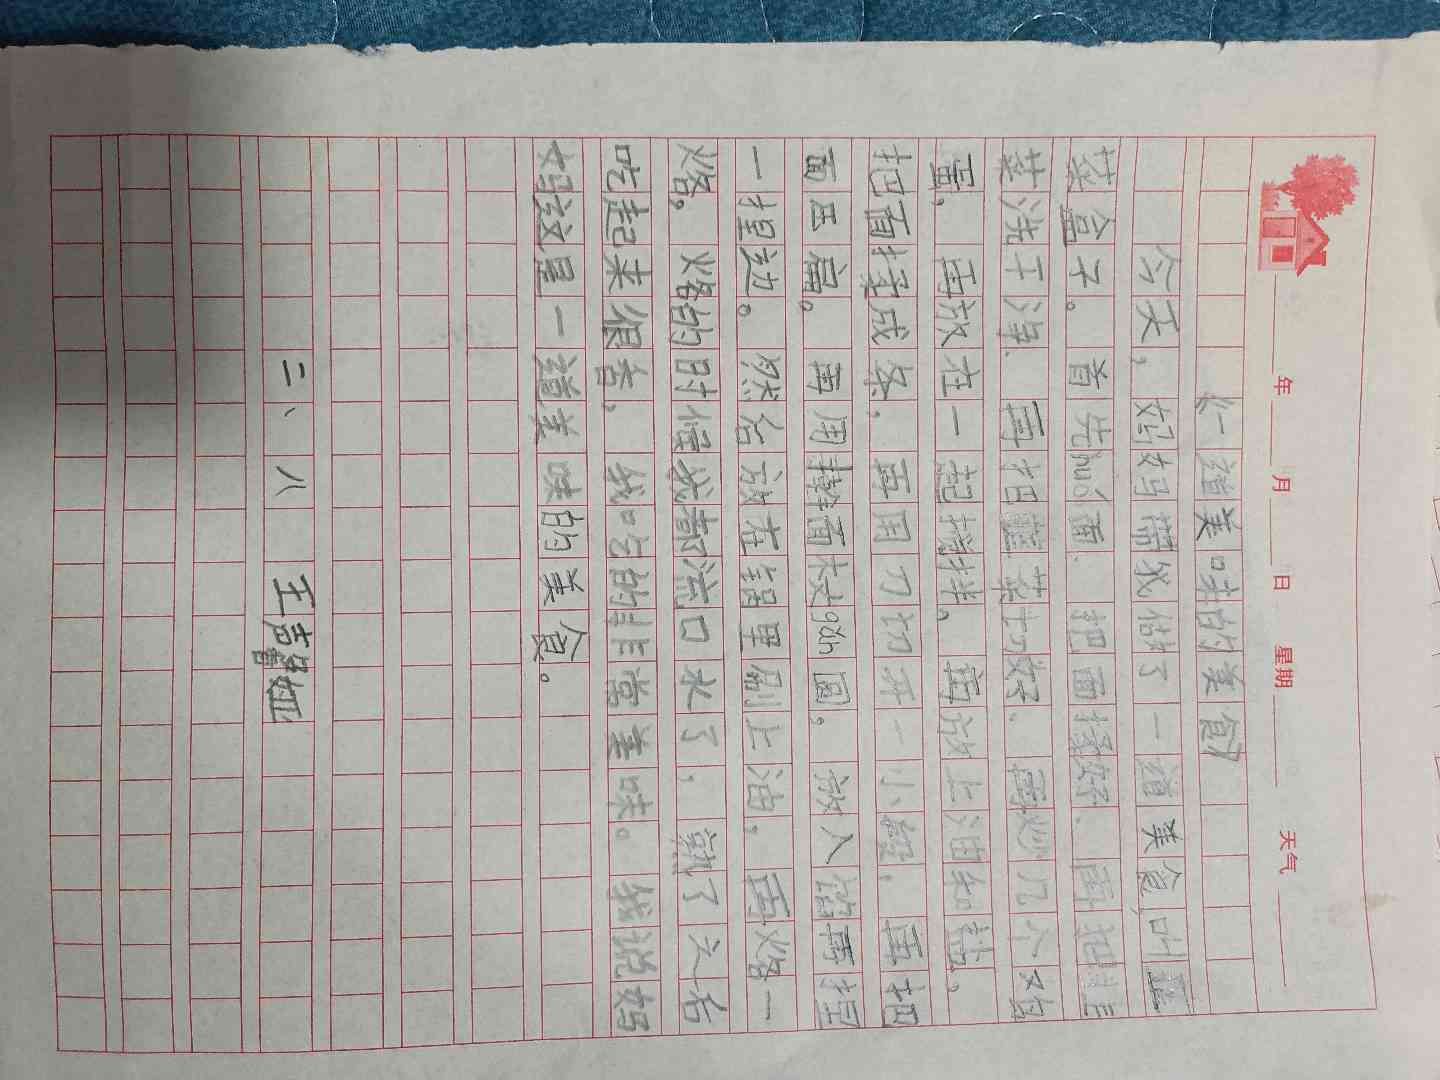 年 月 日 星期 天气
《一道美味的美食》
今天，妈妈带我做了一道美食,叫韭
菜盒子。首先huó面.把面揉好.再把韭
菜洗干净.再把韭菜切好.再炒几个鸡
蛋，再放在一起搅拌，再放上油和盐。
把面揉成条，再用刀切开一小段，再把
面压扁。再用擀面杖gǎn圆。放入馅再捏
一捏边。然后放在锅里刷上油，再烙一
烙。烙的时候我都流口水了，熟了之后
吃起来很香，我吃的非常美味。我说妈
妈这是一道美味的美食。
二、八 王